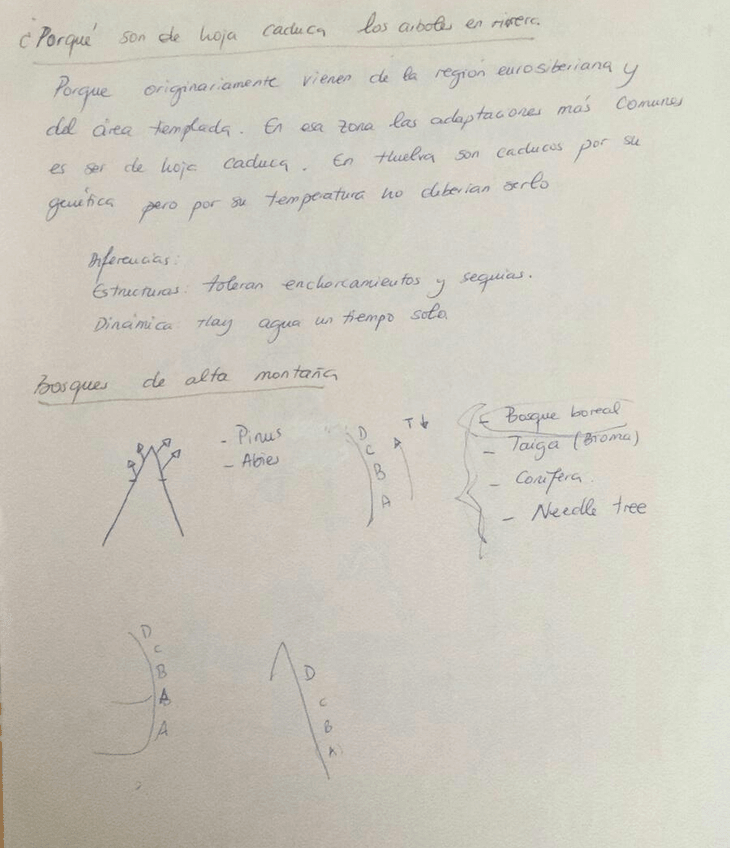 ¿Porqué son de hoja caduca los arboles en rivera.
Porque originariamente vienen de la región eurosiberiana y
del área templada. En esa zona las adaptaciones más comunes
es ser de hoja caduca. En Huelva son caducos por su
genética pero por su temperatura no deberian serlo
Inferencias:
Estructuras: toleran encharcamientos y sequias.
Dinámica: Hay agua un tiempo solo.
Bosques de alta montaña
- Pinus
- Abies
D
C
B
A
T ↓
- Bosque boreal
- Taiga (Bioma)
- Conífera.
- Needle tree
D
C
B
A
A
D
C
B
A